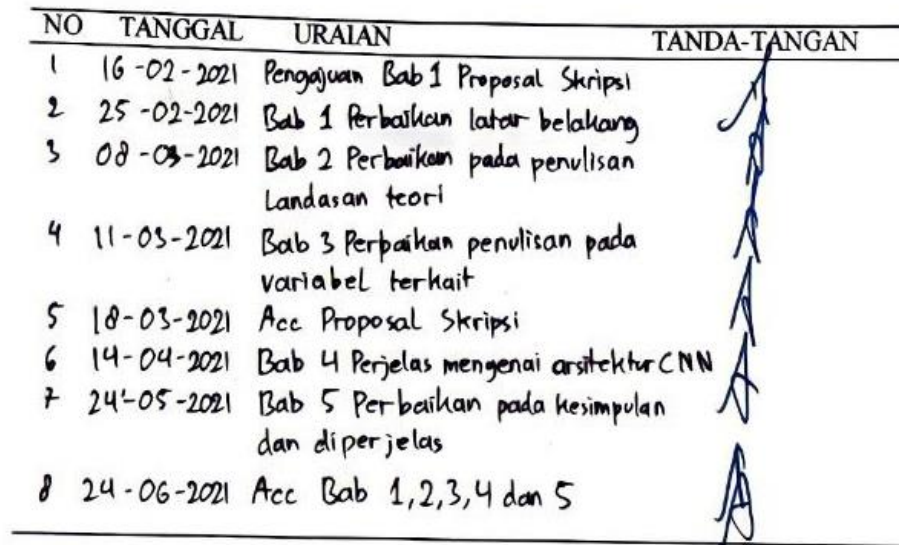 NO TANGGAL URAIAN TANDA-TANGAN
1 16-02-2021 Pengajuan Bab 1 Proposal Skripsi
2 25-02-2021 Bab 1 Perbaikan latar belakang
3 08-03-2021 Bab 2 Perbaikan pada penulisan
Landasan teori
4 11-03-2021 Bab 3 Perbaikan penulisan pada
variabel terkait
5 18-03-2021 Acc Proposal Skripsi
6 14-04-2021 Bab 4 Perjelas mengenai arsitektur CNN
7 24-05-2021 Bab 5 Perbaikan pada kesimpulan
dan diperjelas
8 24-06-2021 Acc Bab 1,2,3,4 dan 5